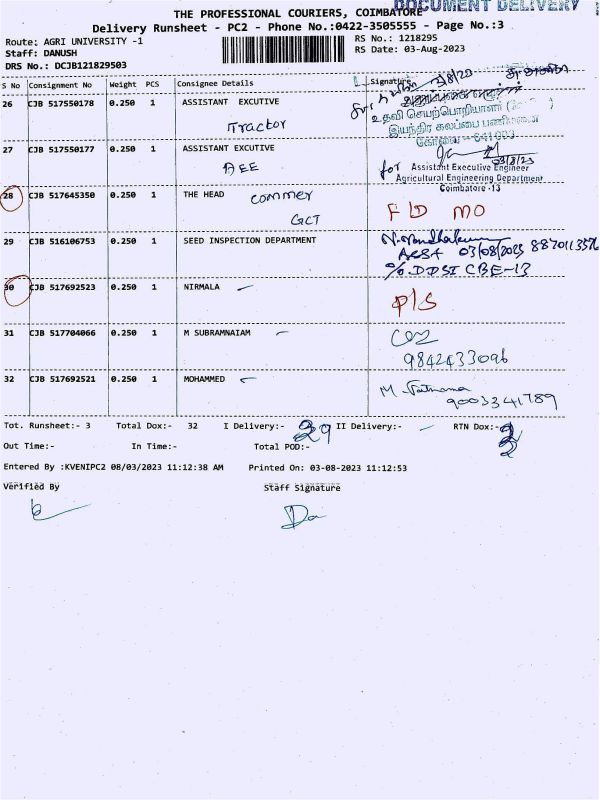 DOCUMENT DELIVERY
THE PROFESSIONAL COURIERS, COIMBATORE
Delivery Runsheet - PC2 - Phone No.:0422-3505555 - Page No.:3
Route: AGRI UNIVERSITY -1
RS No.: 1218295
Staff: DANUSH
RS Date: 03-Aug-2023
DRS No.: DCJB121829503
S No Consignment No Weight PCS Consignee Details Signature
26 CJB 517550178 0.250 1 ASSISTANT EXCUTIVE
Tractor
உதவி செயற்பொறியாளர்
இயந்திர கலப்பை பணிமனை
கோவை - 641 003
27 CJB 517550177 0.250 1 ASSISTANT EXCUTIVE
AEE
03/8/23
for Assistant Executive Engineer
Agricultural Engineering Department
Coimbatore -13
28 CJB 517645350 0.250 1 THE HEAD commer
GCT
F D MO
29 CJB 516106753 0.250 1 SEED INSPECTION DEPARTMENT
N. Nandhakumar
ACSA 03/08/2023 8870113576
%. DDSI CBE-13
30 CJB 517692523 0.250 1 NIRMALA
P/S
31 CJB 517704066 0.250 1 M SUBRAMNAIAM
9842433096
32 CJB 517692521 0.250 1 MOHAMMED
9003341789
Tot. Runsheet:- 3 Total Dox:- 32 I Delivery:- 29 II Delivery:- – RTN Dox:-
Out Time:- In Time:- Total POD:-
Entered By :KVENIPC2 08/03/2023 11:12:38 AM Printed On: 03-08-2023 11:12:53
Verified By Staff Signature